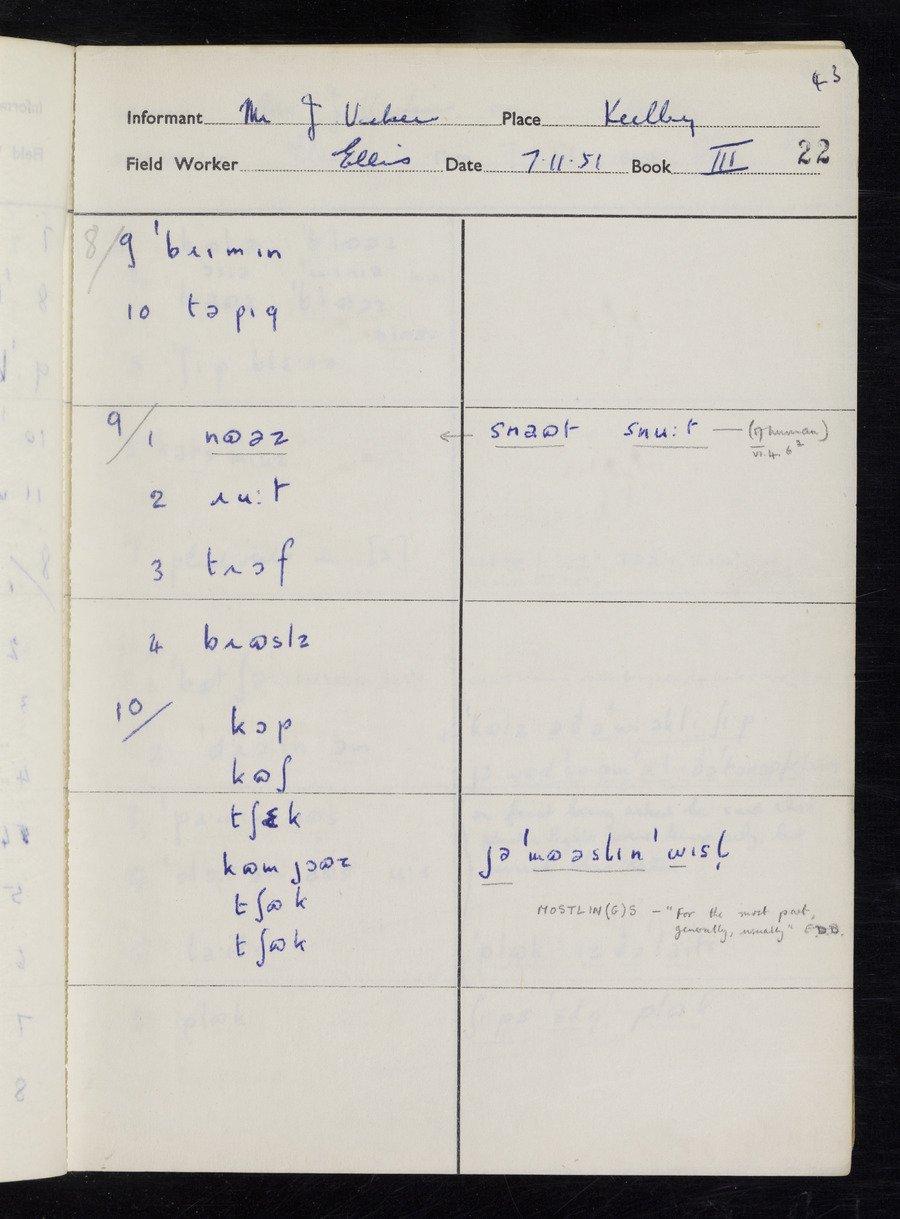 43
Informant Mr J Place Keelby
Field Worker Ellis Date 7.11.51 Book III 22
8/ 9 ˈbɹımın
10 tə pıg
9/ 1 nɷəz ← snaɷt snu:t — (of human)
VI.4.6²
2 ɹu:t
3 tɹɔf
4 bɹɷslz
10/ kɔp
kɷʃ
tʃɛk
kɷm jɔəz
tʃɷk
tʃɷk
MOSTLIN(G)S - "For the most part,
generally, usually" EDD.